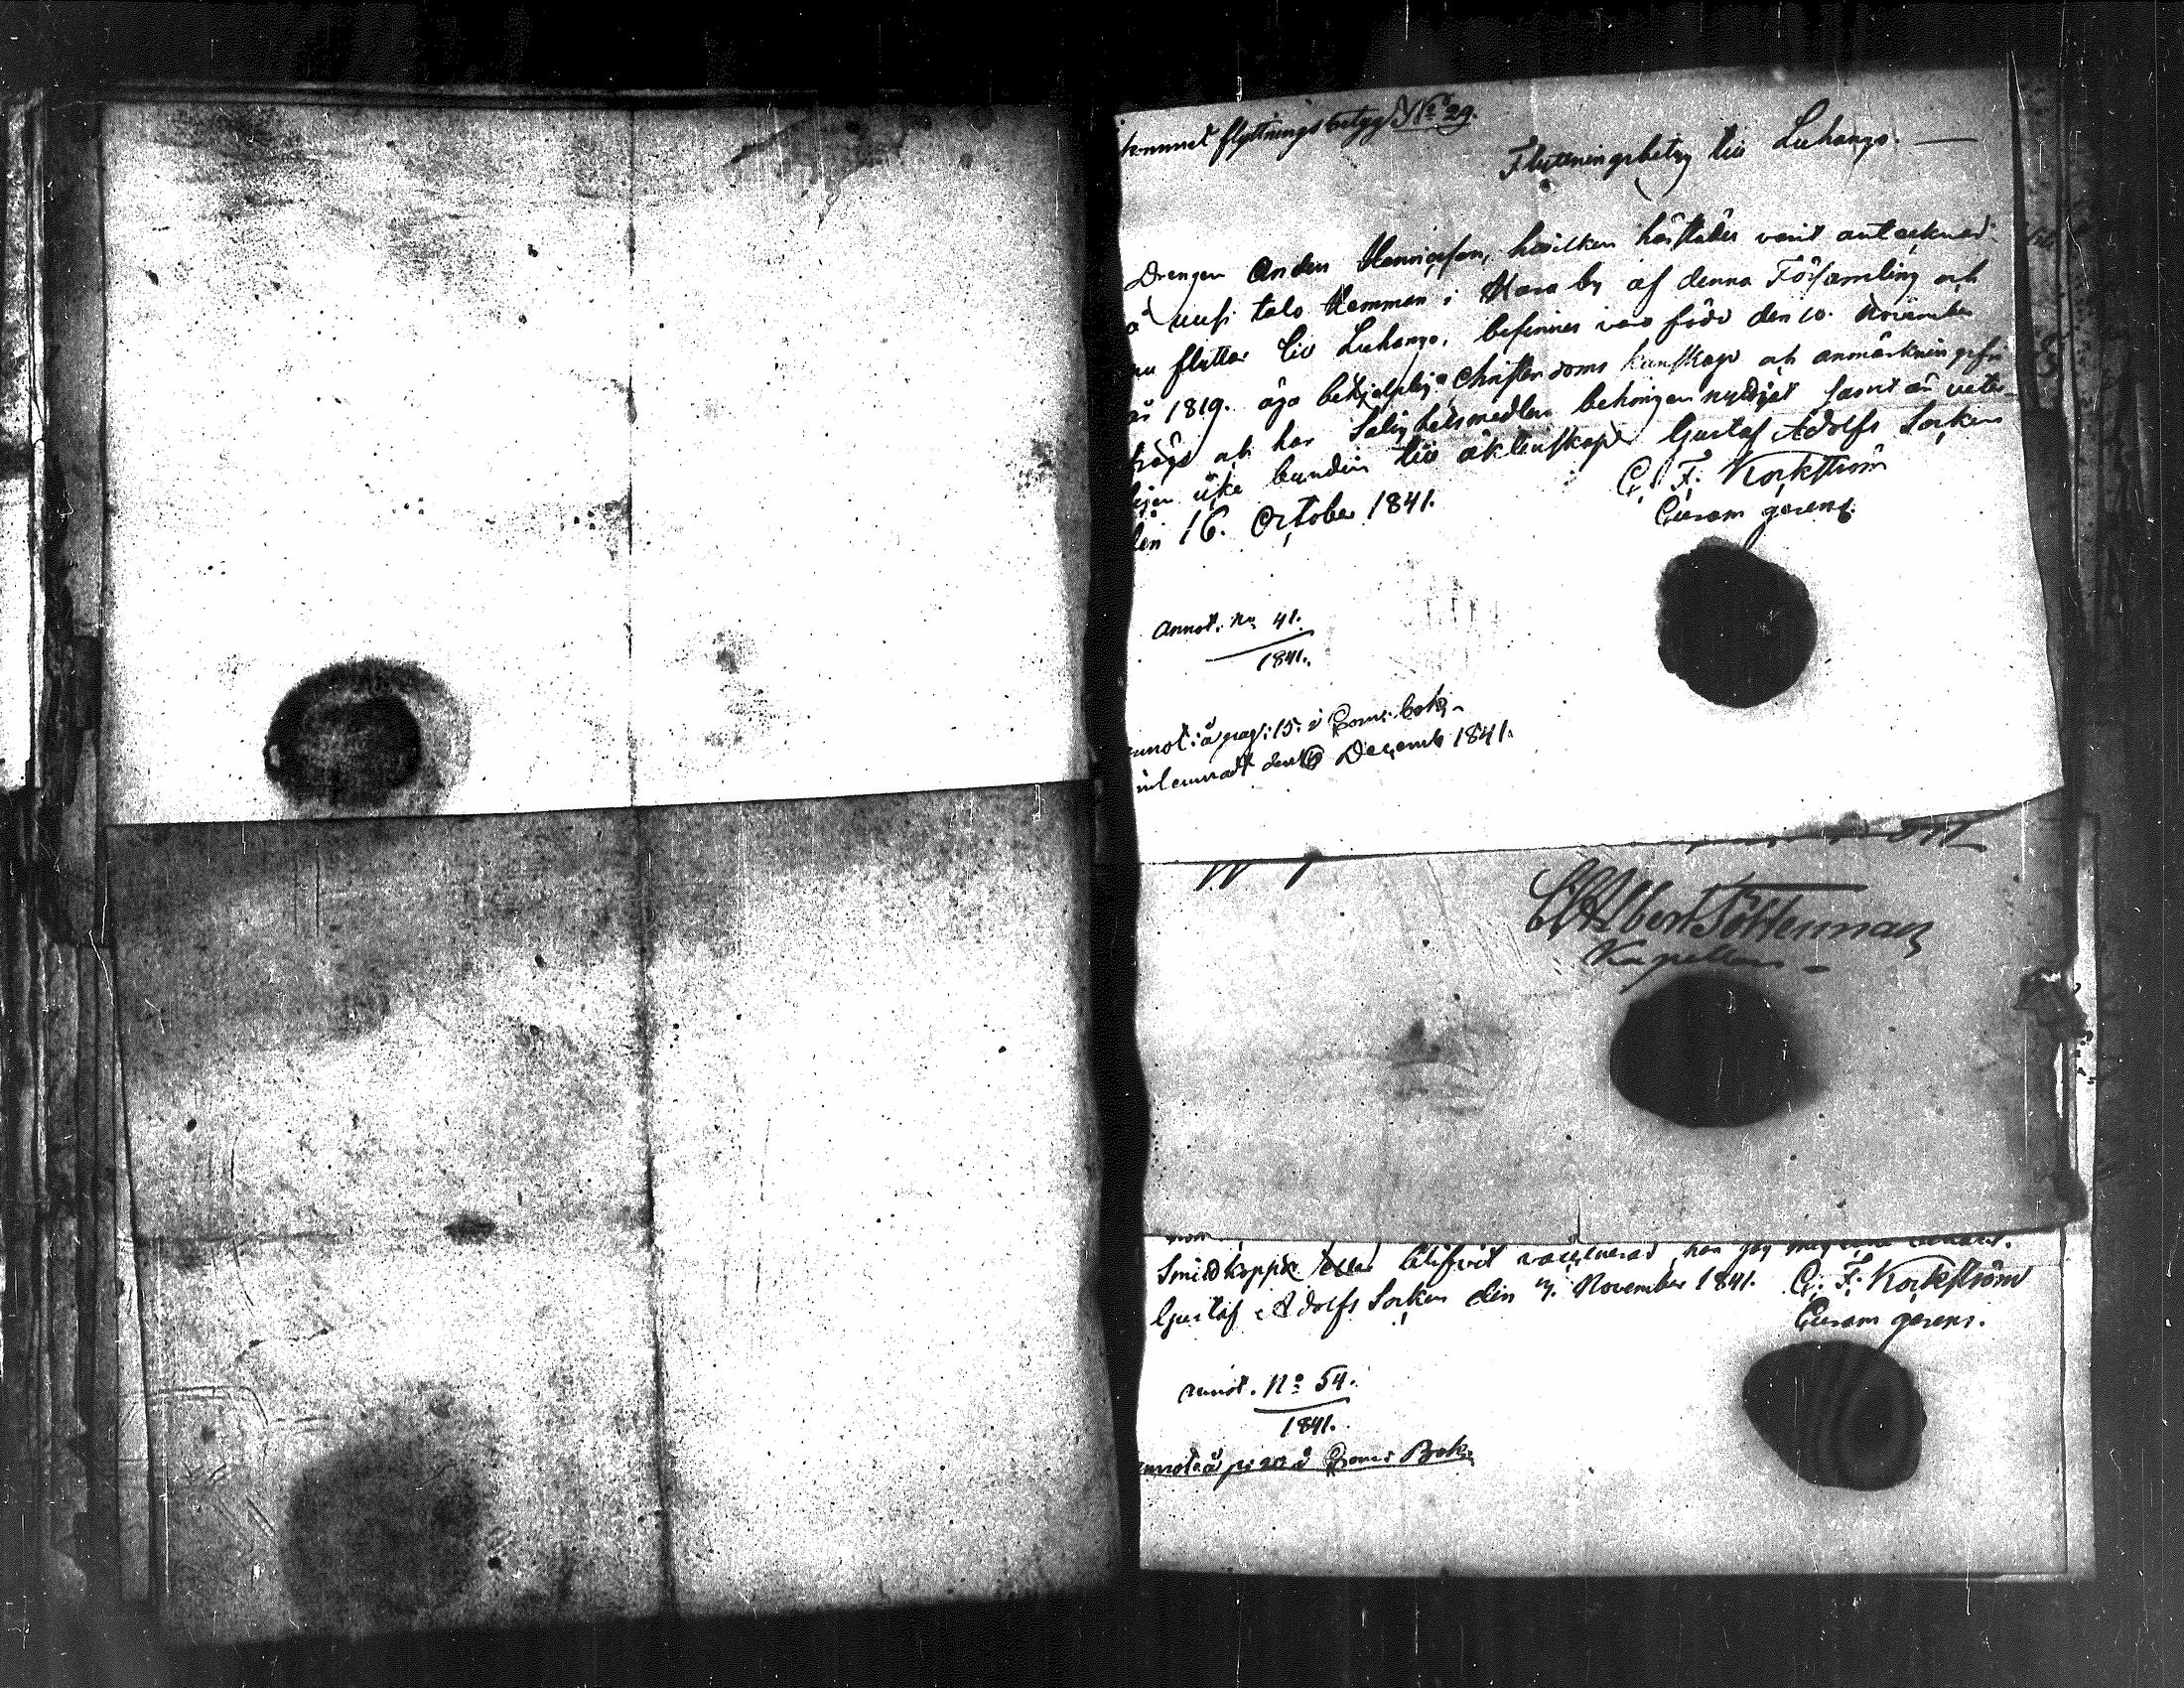 flyttningsbetyg No 29.
Flyttningsbetyg till Luhango.
Drengen Anders Henricsson, hvilken härstädes varit antecknad
å Uusi talo Hemman i Hara by af denna Församling och
nu flyttar till Luhango, befinnes vara född den 10. November
år 1819. äga behjelplig Christendoms kunskap och anmärkningsfri
frägd och har Salighetsmedlen behörigen nyttjat samt är veter-
ligen icke bunden till äktenskap. Gustaf Adolfs Socken
den 16. October 1841.
G. F. Korkström
Curam gerens.
Annot. No 41.
1841.
annot: å pag: 15. i Comm: bok.
inlemnadt den Decemb 1841.
Albert Tötterman
Kapellan
Smittkoppor eller blifvit vaccinerad, har jag mig
Gustaf Adolfs Socken den 7. November 1841. G. F. Korkström
Curam gerens.
Annot. No 54.
1841.
annot: å p: 20 i Comm: Bok.